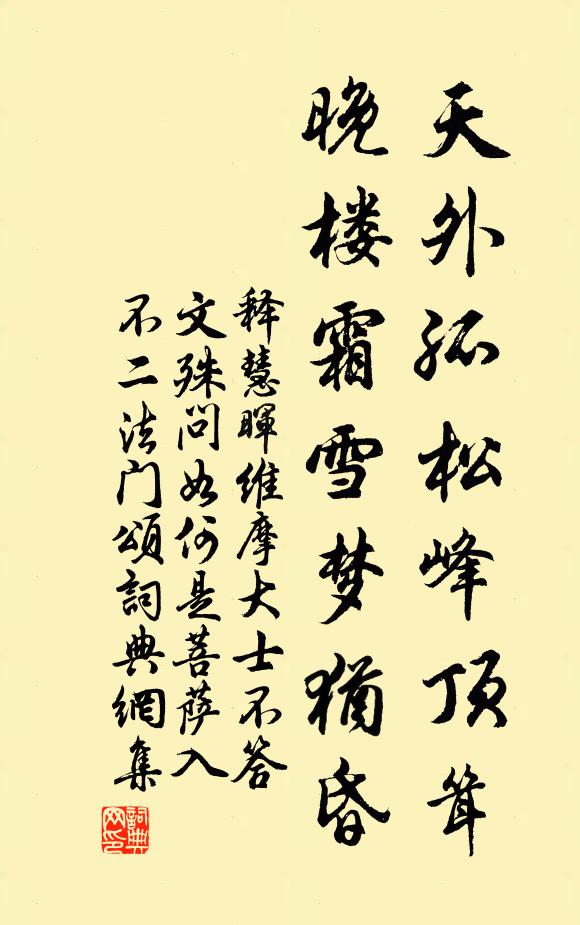 天外孤松峰顶耸
晚楼霜雪梦犹昏
释慧晖维摩大士不答
文殊问如何是菩萨入
不二法门颂词典网集
詞典
网印